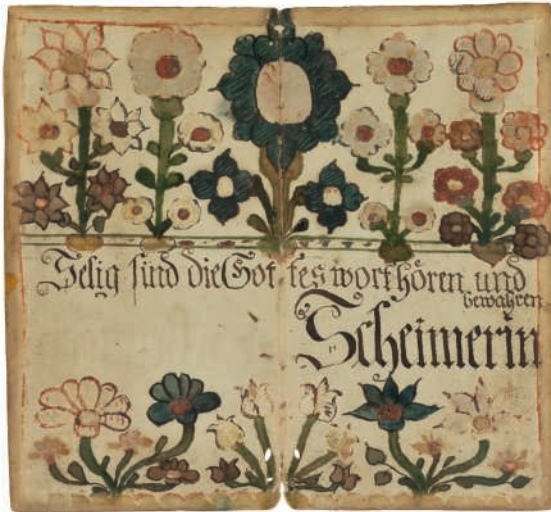 Selig sind die Gottes wort hören und
bewahren
Scheimerin